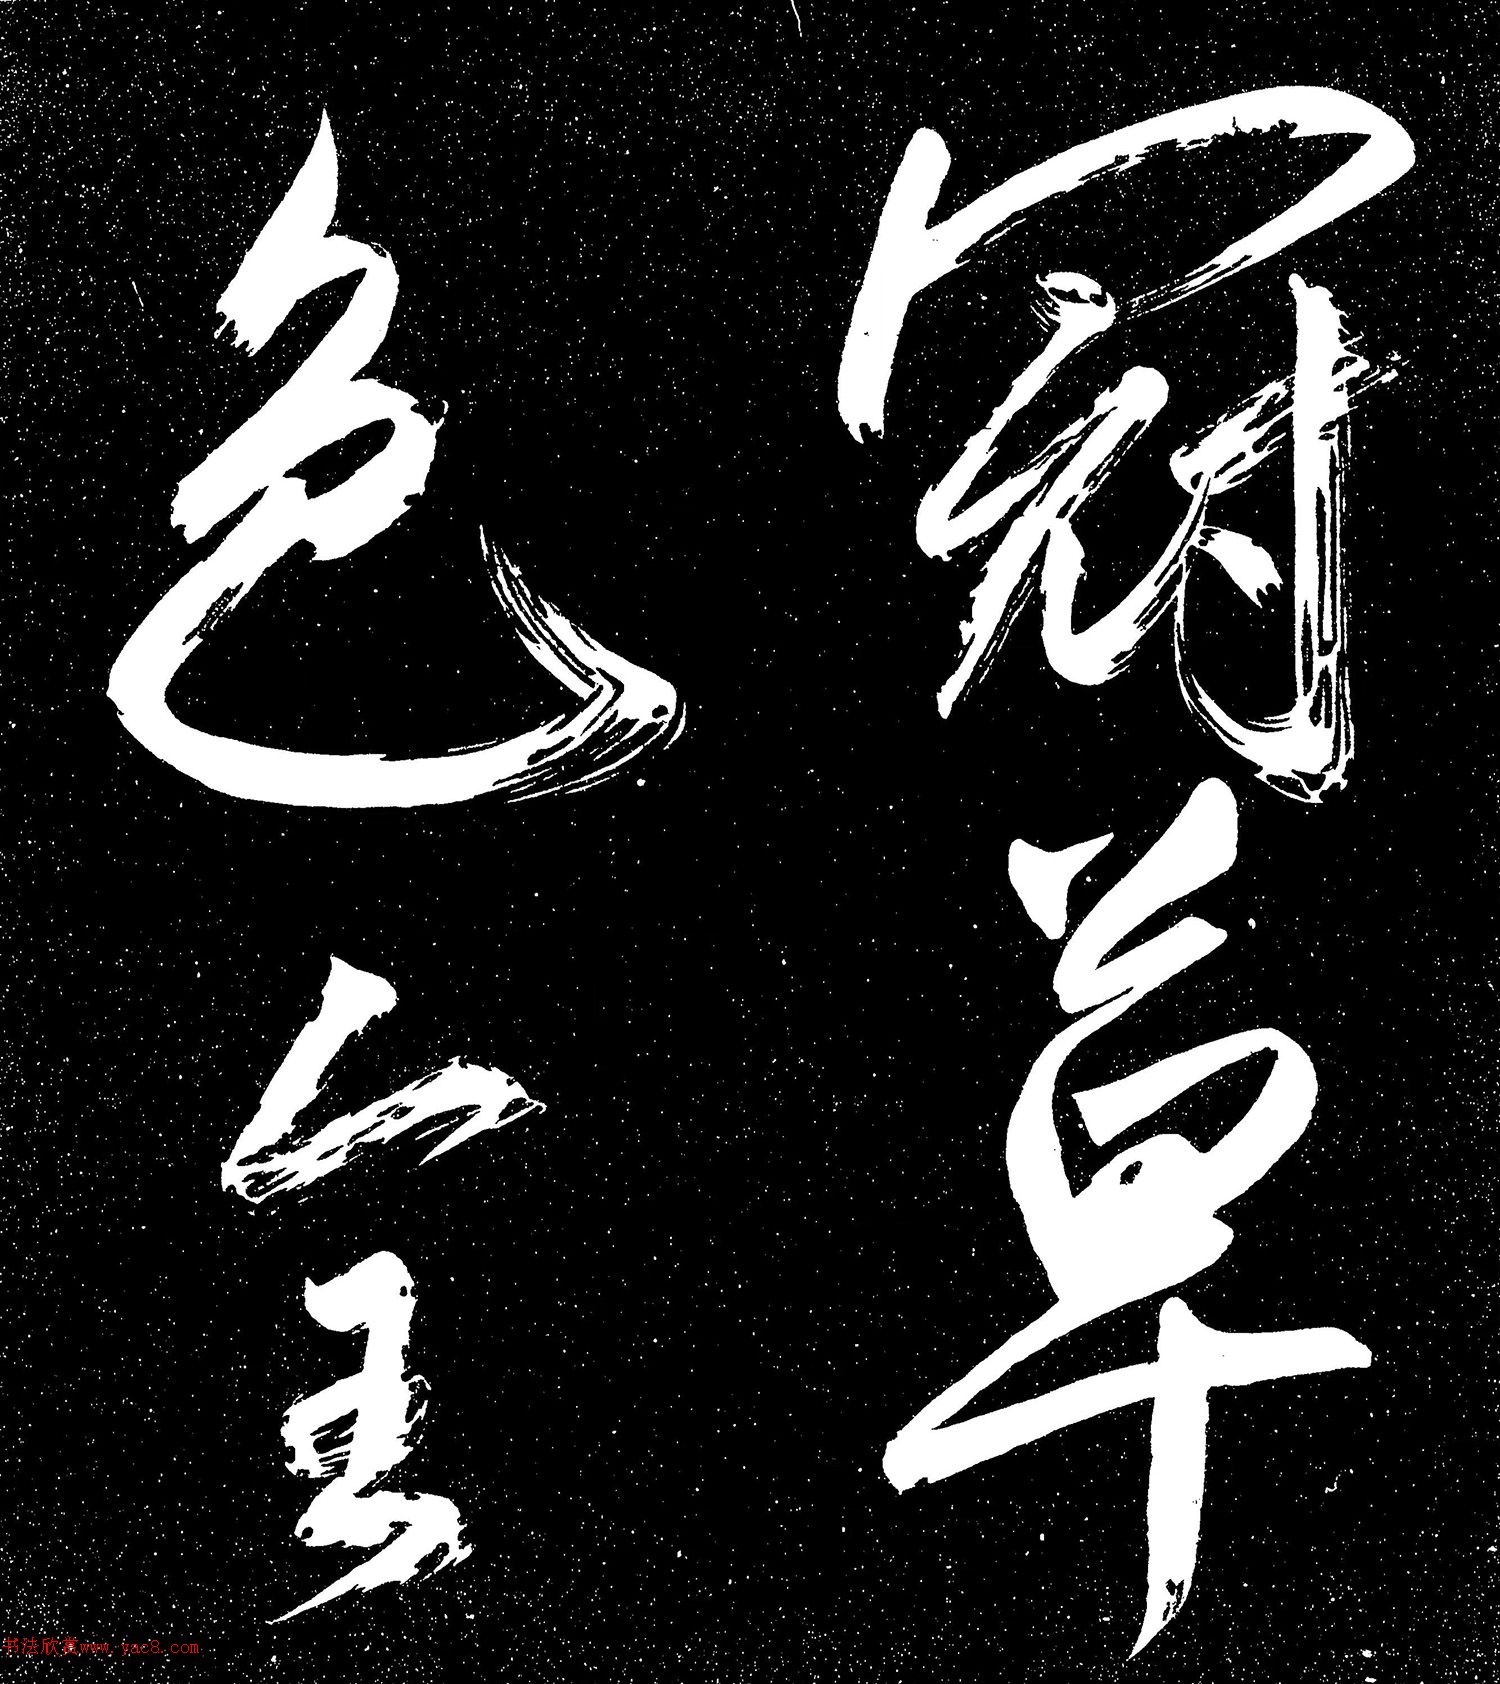 冠草
色全
书法欣赏www.yac8.com